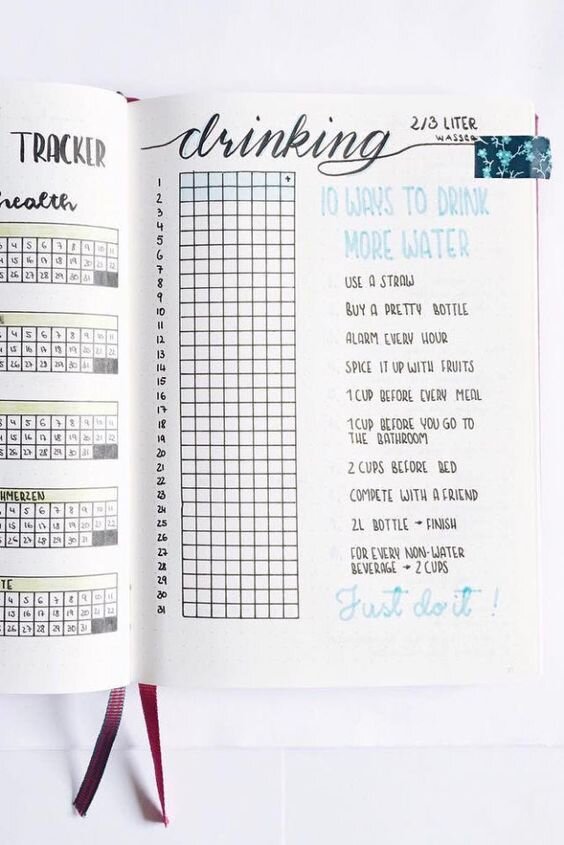 TRACKER
health
4 5 6 7 8 9 10 11
15 16 17 18 19 20 21 22
26 27 28 29 30 31
4 5 6 7 8 9 10 11
15 16 17 18 19 20 21 22
26 27 28 29 30 31
4 5 6 7 8 9 10 11
15 16 17 18 19 20 21 22
26 27 28 29 30 31
HMERZEN
4 5 6 7 8 9 10 11
15 16 17 18 19 20 21 22
26 27 28 29 30 31
TE
4 5 6 7 8 9 10 11
15 16 17 18 19 20 21 22
26 27 28 29 30 31
drinking
2/3 LITER
WASSER
+
1
2
3
4
5
6
7
8
9
10
11
12
13
14
15
16
17
18
19
20
21
22
23
24
25
26
27
28
29
30
31
10 WAYS TO DRINK
MORE WATER
USE A STRAW
BUY A PRETTY BOTTLE
ALARM EVERY HOUR
SPICE IT UP WITH FRUITS
1 CUP BEFORE EVERY MEAL
1 CUP BEFORE YOU GO TO
THE BATHROOM
2 CUPS BEFORE BED
COMPETE WITH A FRIEND
2L BOTTLE → FINISH
FOR EVERY NON-WATER
BEVERAGE → 2 CUPS
Just do it !